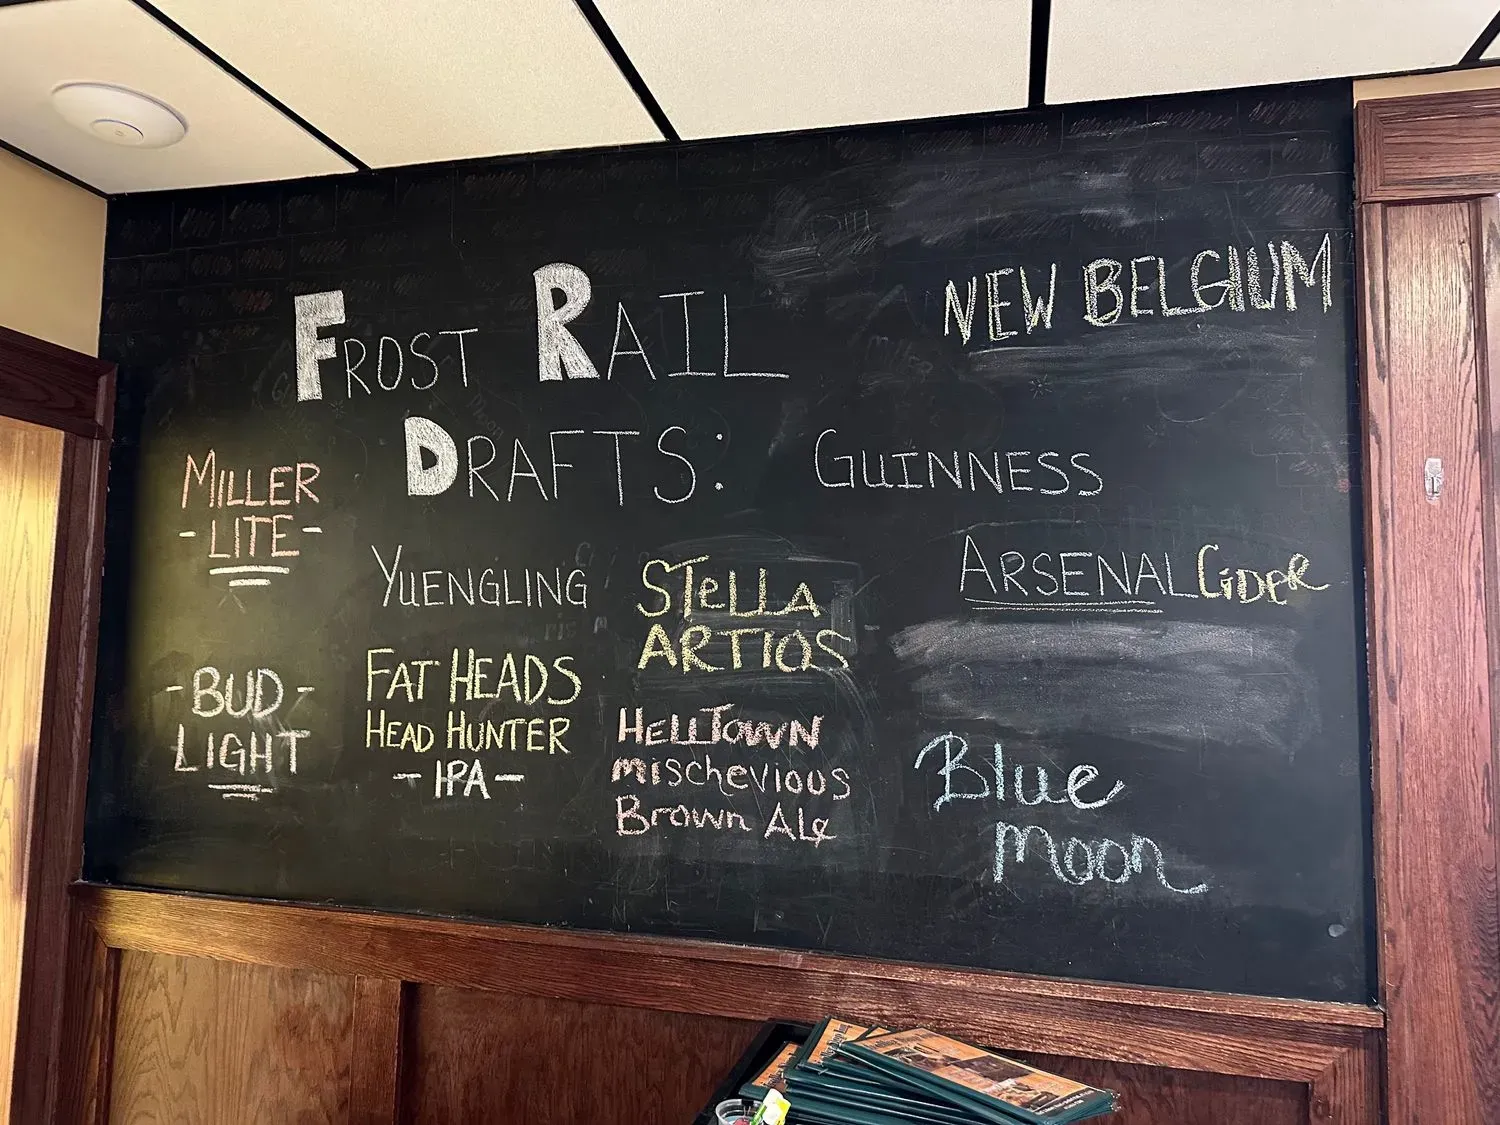 FROST RAIL
DRAFTS:
NEW BELGIUM
MILLER
-LITE-
GUINNESS
YUENGLING
STELLA
ARTIOS
ARSENAL CIDER
-BUD-
LIGHT
FAT HEADS
HEAD HUNTER
-IPA-
HELLTOWN
mischevious
Brown Ale
Blue
moon